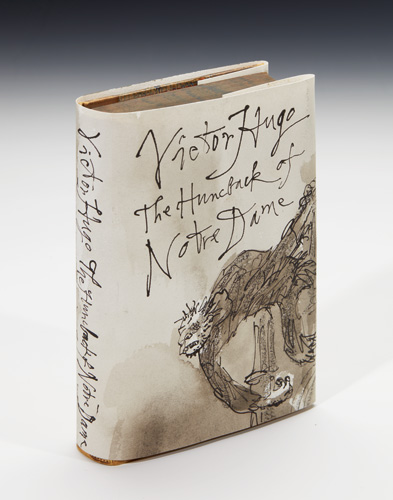 Victor Hugo
The Huncback of
Notre Dame
Victor Hugo The Hunchback of Notre Dame